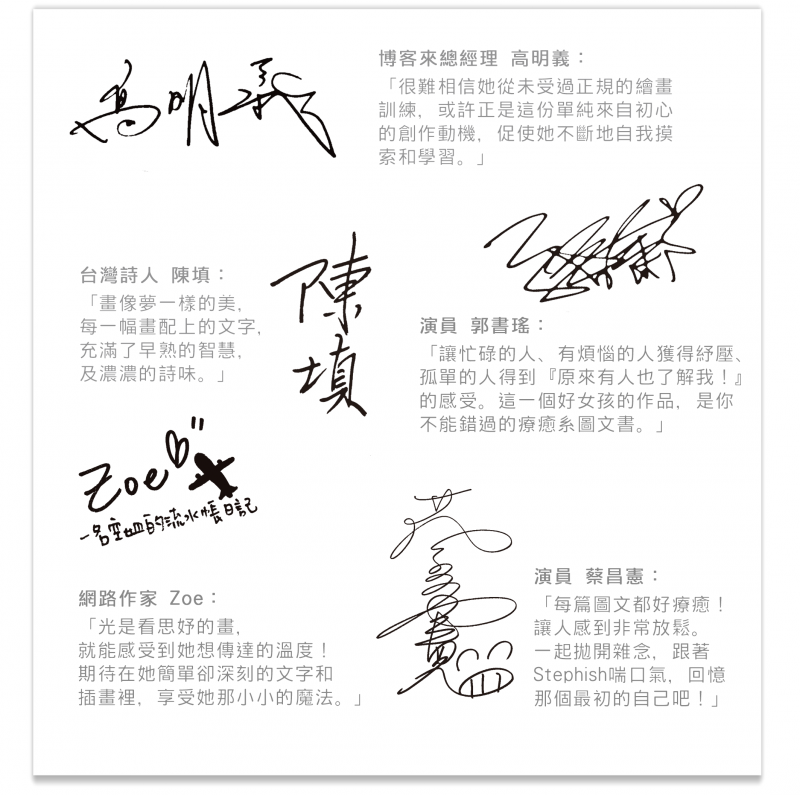 高明義
博客來總經理 高明義：
「很難相信她從未受過正規的繪畫
訓練，或許正是這份單純來自初心
的創作動機，促使她不斷地自我摸
索和學習。」
台灣詩人 陳填：
「畫像夢一樣的美，
每一幅畫配上的文字，
充滿了早熟的智慧，
及濃濃的詩味。」
陳
填
演員 郭書瑤：
「讓忙碌的人、有煩惱的人獲得紓壓、
孤單的人得到『原來有人也了解我！』
的感受。這一個好女孩的作品，是你
不能錯過的療癒系圖文書。」
Zoe
一名空姐的流水帳日記
網路作家 Zoe：
「光是看思妤的畫，
就能感受到她想傳達的溫度！
期待在她簡單卻深刻的文字和
插畫裡，享受她那小小的魔法。」
演員 蔡昌憲：
「每篇圖文都好療癒！
讓人感到非常放鬆。
一起拋開雜念，跟著
Stephish喘口氣，回憶
那個最初的自己吧！」